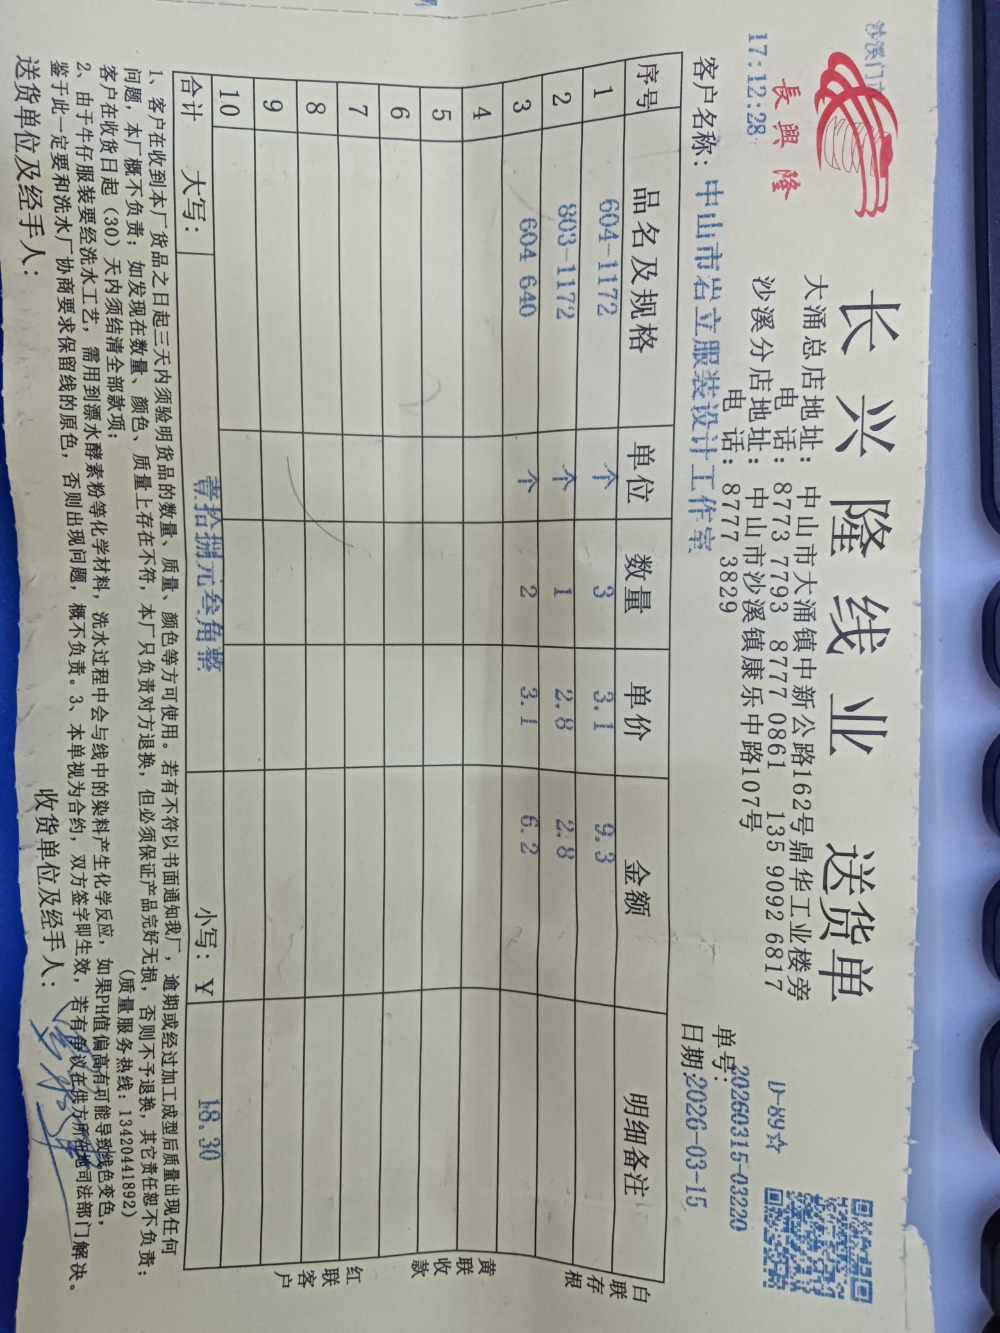 沙溪门市
17:12:28
長興隆
长兴隆线业 送货单
大涌总店地址：中山市大涌镇中新公路162号鼎华工业楼旁
电 话：8773 7793 8777 0861 135 9092 6817
沙溪分店地址：中山市沙溪镇康乐中路107号
电 话：8777 3829
D-89☆
单号：20260315-03220
日期：2026-03-15
客户名称：中山市岩立服装设计工作室
序号 品名及规格 单位 数量 单价 金额 明细备注
1 604-1172 个 3 3.1 9.3
2 803-1172 个 1 2.8 2.8
3 604 640 个 2 3.1 6.2
4
5
6
7
8
9
10
合计 大写： 壹拾捌元叁角整 小写：¥ 18.30
白联存根
黄联收款
红联客户
1、客户在收到本厂货品之日起三天内须验明货品的数量、质量、颜色等方可使用。若有不符以书面通知我厂，逾期或经过加工成型后质量出现任何
问题，本厂概不负责；如发现在数量、颜色、质量上存在不符，本厂只负责对方退换，但必须保证产品完好无损，否则不予退换，其它责任恕不负责；
客户在收货日起（30）天内须结清全部款项；（质量服务热线：13420441892）
2、由于牛仔服装要经洗水工艺，需用到漂水酵素粉等化学材料，洗水过程中会与线中的染料产生化学反应，如果PH值偏高有可能导致线色变色，
鉴于此一定要和洗水厂协商要求保留线的原色，否则出现问题，概不负责。3、本单视为合约，双方签字即生效，若有争议在供方所在地司法部门解决。
送货单位及经手人： 收货单位及经手人：